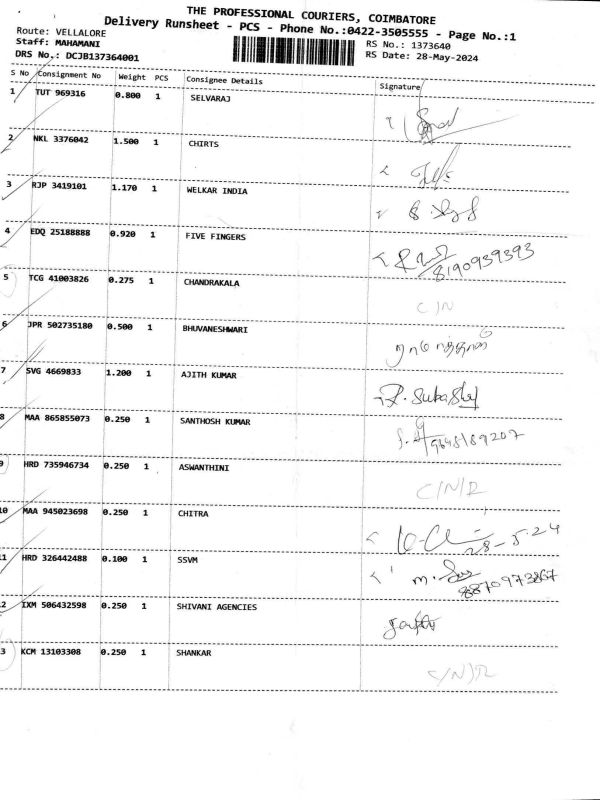 THE PROFESSIONAL COURIERS, COIMBATORE
Delivery Runsheet - PCS - Phone No.:0422-3505555 - Page No.:1
Route: VELLALORE
Staff: MAHAMANI
DRS No.: DCJB137364001
RS No.: 1373640
RS Date: 28-May-2024
S No Consignment No Weight PCS Consignee Details Signature
1 TUT 969316 0.800 1 SELVARAJ
2 NKL 3376042 1.500 1 CHIRTS
3 RJP 3419101 1.170 1 WELKAR INDIA
4 EDQ 25188888 0.920 1 FIVE FINGERS
8190939393
5 TCG 41003826 0.275 1 CHANDRAKALA C/N
6 JPR 502735180 0.500 1 BHUVANESHWARI
7 SVG 4669833 1.200 1 AJITH KUMAR
8 MAA 865855073 0.250 1 SANTHOSH KUMAR
9 HRD 735946734 0.250 1 ASWANTHINI C/N/R
10 MAA 945023698 0.250 1 CHITRA
28-5-24
11 HRD 326442488 0.100 1 SSVM
8870973867
2 IXM 506432598 0.250 1 SHIVANI AGENCIES
3 KCM 13103308 0.250 1 SHANKAR C/N/R